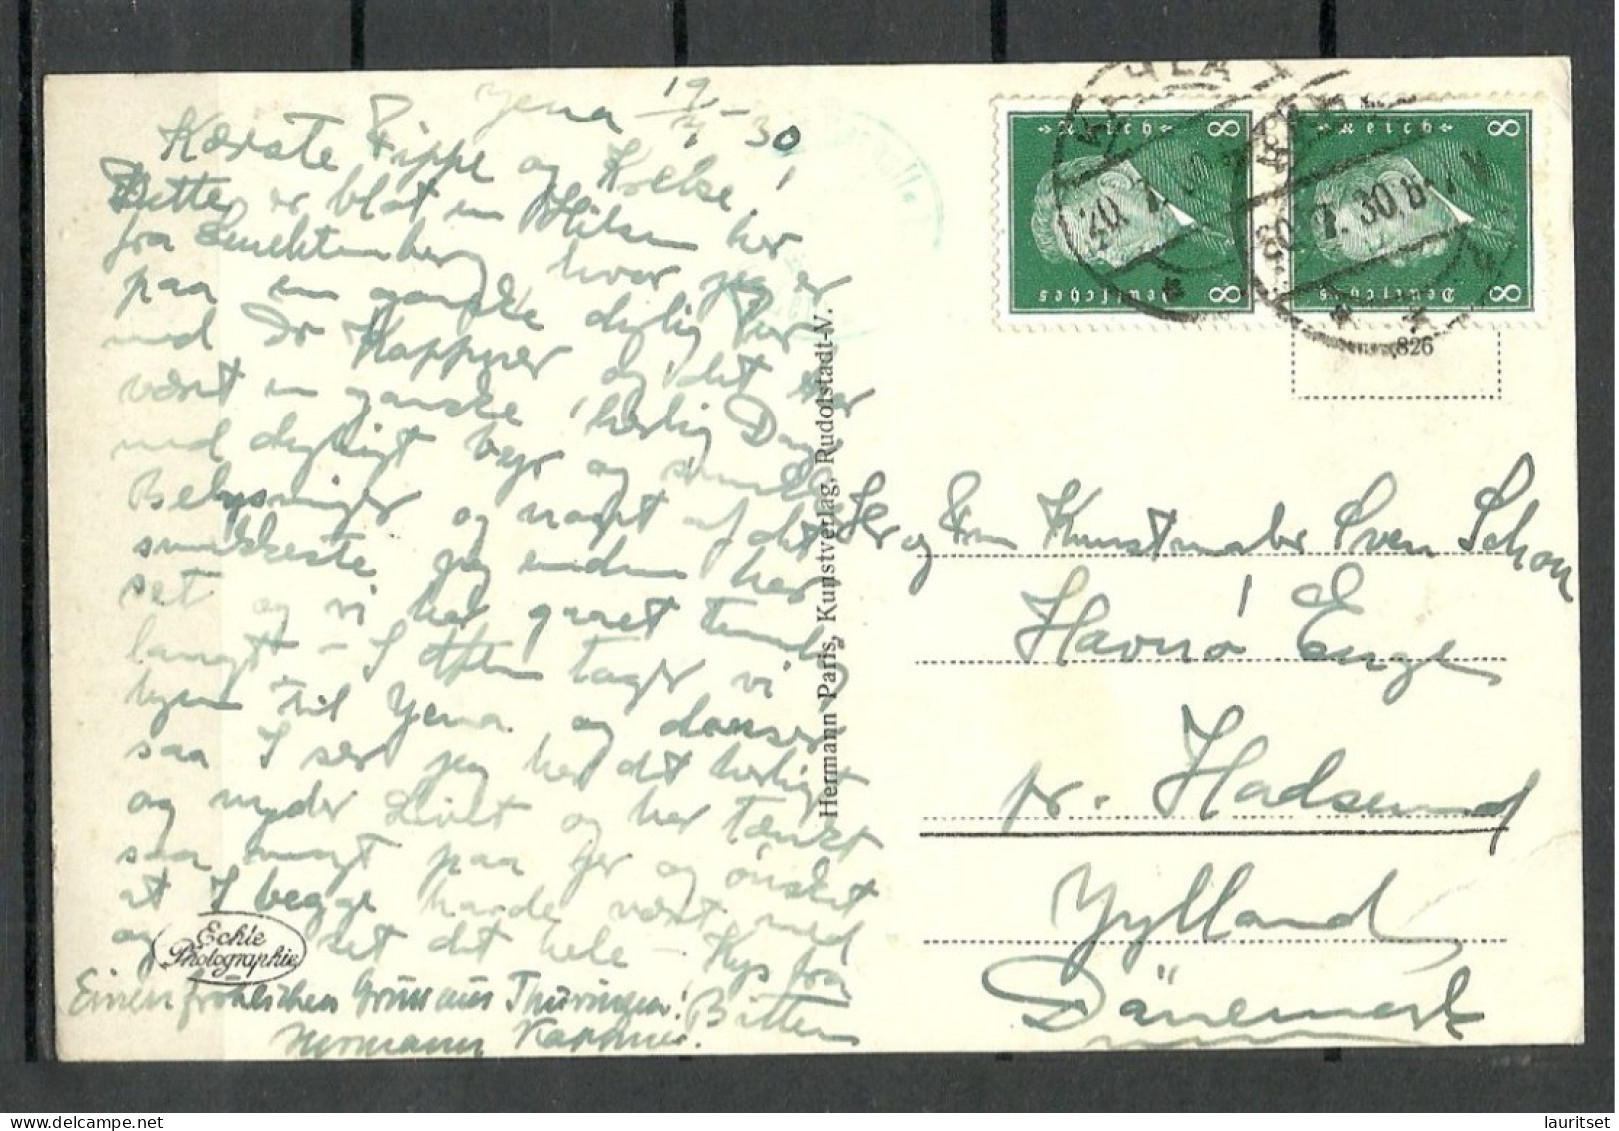 Jena 19/7 - 30
Kæreste Fippe og
Dette er blot en Hilsen her
fra Leuchtenberg hvor jeg er
paa en ganske dejlig Tur
med Dr Kappner og det har
været en ganske herlig Dag
med dejligt Vejr og smukke
Belysninger og noget af det
smukkeste jeg endnu har
set og vi har gaaet
langt - I Aften tager vi
til Jena og danser
saa I ser jeg har det herligt
og nyder Livet og har tænkt
saa meget paa Jer og ønsket
at I begge havde været med
og set det hele - Kys fra
Bitten
Einen fröhlichen Gruss aus Thüringen!
Hermann
Echte
Photographie
Hermann Paris, Kunstverlag, Rudolstadt-V.
Deutsches Reich 8
Deutsches Reich 8
KAHLA
20.7.30.8
826
Hr og Fru Kunstmaler Sven Schou
Havnø Enge
pr. Hadsund
Jylland
Dänemark
lauritset